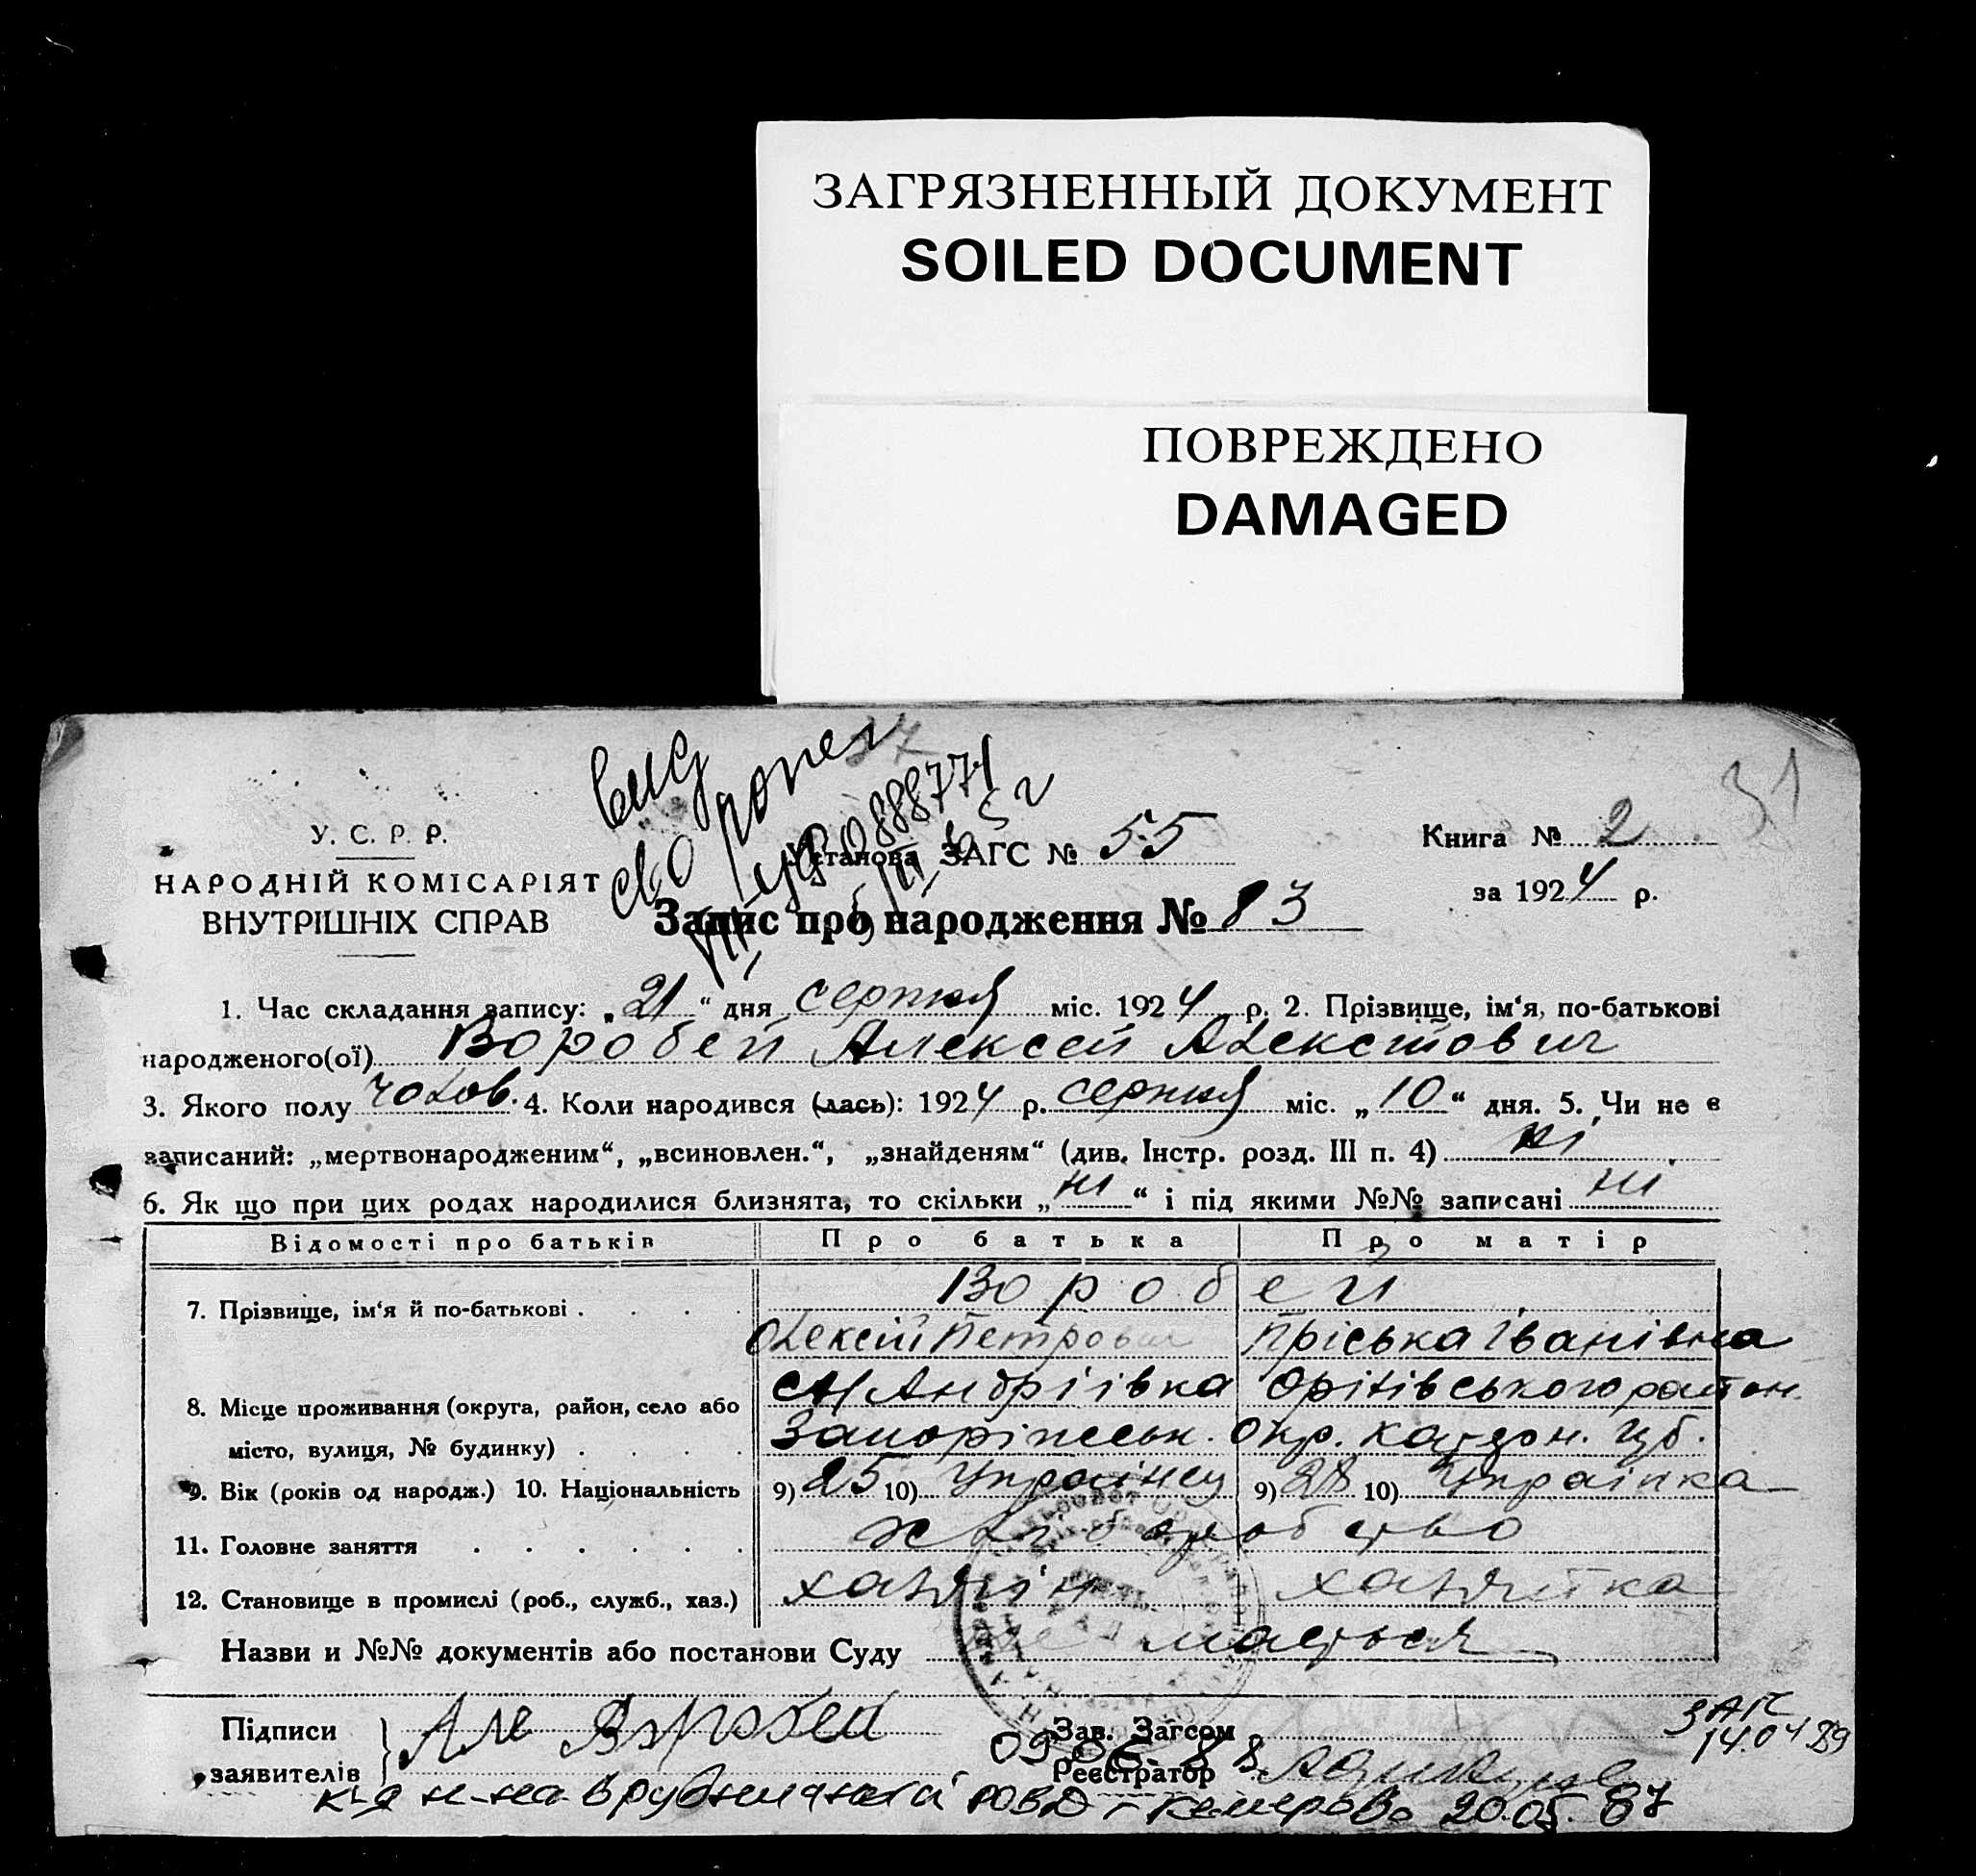 ЗАГРЯЗНЕННЫЙ ДОКУМЕНТ
SOILED DOCUMENT
ПОВРЕЖДЕНО
DAMAGED
31
У. С. Р. Р.
НАРОДНІЙ КОМІСАРІЯТ
ВНУТРІШНІХ СПРАВ
Установа ЗАГС № 55
Книга № 2
за 1924 р.
Запис про народження № 83
1. Час складання запису: „21“ дня серпня міс. 1924 р. 2. Прізвище, ім‘я, по-батькові
народженого(ої) Воробей Алексей Алексеович
3. Якого полу чолов. 4. Коли народився (лась): 1924 р. серпня міс. „10“ дня. 5. Чи не є
записаний: „мертвонародженим“, „всиновлен.“, „знайденям“ (див. Інстр. розд. III п. 4) ні
6. Як що при цих родах народилися близнята, то скільки „ні“ і під якими №№ записані ні
Відомості про батьків Про батька Про матір
7. Прізвище, ім‘я й по-батькові . . . . Воробей
Олексій Петрович Пріська Іванівна
8. Місце проживання (округа, район, село або
місто, вулиця, № будинку) . . . .
Андріівка Оріхівського район.
Запоріжськ. Окр. Катерн. губ.
9. Вік (років од народж.) 10. Національність 9) 25 10) Українец 9) 28 10) Українка
11. Головне заняття . . . . . . хліборобство
12. Становище в промислі (роб., служб., хаз.) хазяїн хазяйка
Назви и №№ документів або постанови Суду не мається
Підписи
заявителів
Але Воробей
Зав. Загсом
Реєстратор
09.06.88
ЗАГС
14.04 89
РОВД г Кемерово 20.05.87